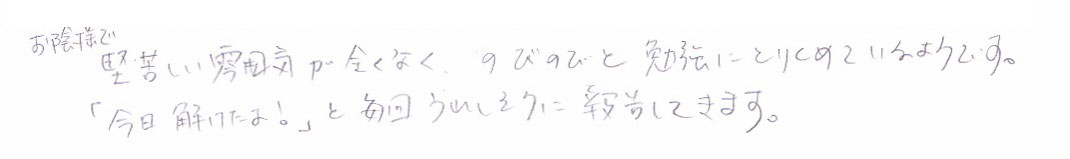 お陰様で
堅苦しい雰囲気が全くなく、のびのびと勉強にとりくめているようです。
「今日解けたよ!」と毎回うれしそうに報告してきます。